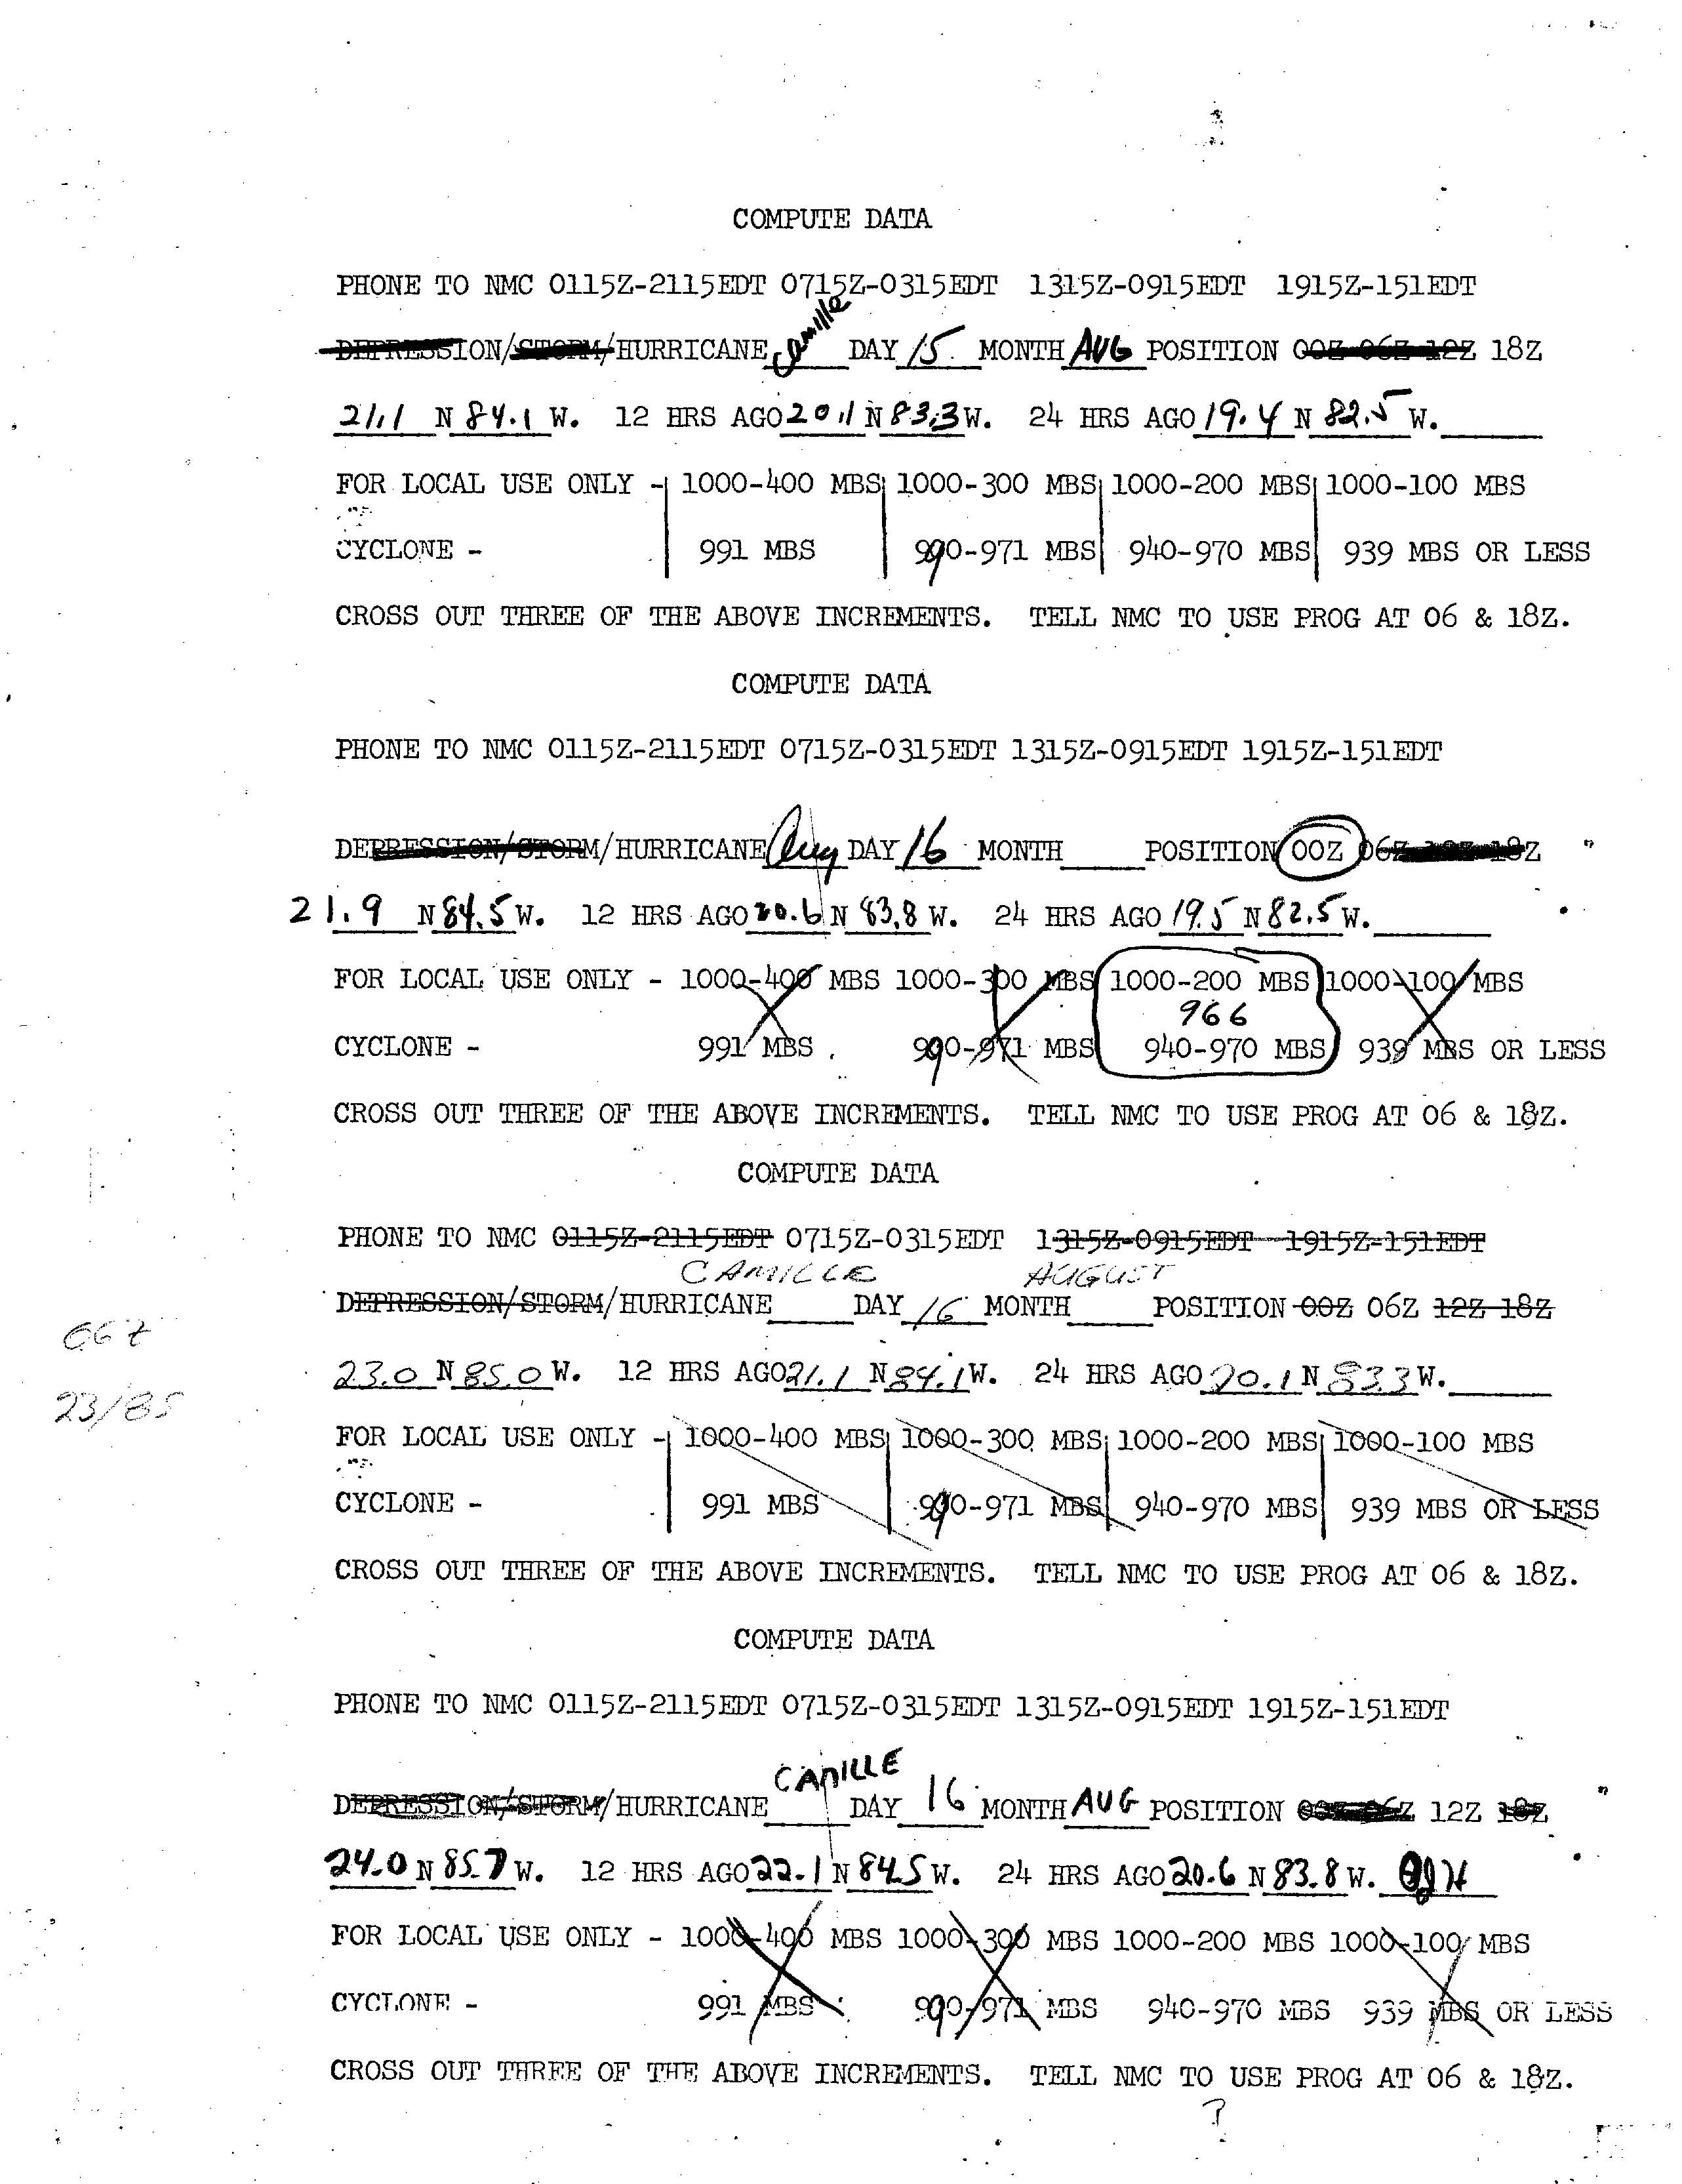 COMPUTE DATA
PHONE TO NMC 0115Z-2115EDT 0715Z-0315EDT 1315Z-0915EDT 1915Z-151EDT
DEPRESSION/STORM/HURRICANE Camille DAY 15 MONTH AUG POSITION 00Z 06Z 12Z 18Z
21.1 N 84.1 W. 12 HRS AGO 20.1 N 83.3 W. 24 HRS AGO 19.4 N 82.5 W.
FOR LOCAL USE ONLY - 1000-400 MBS 1000-300 MBS 1000-200 MBS 1000-100 MBS
CYCLONE - 991 MBS 990-971 MBS 940-970 MBS 939 MBS OR LESS
CROSS OUT THREE OF THE ABOVE INCREMENTS. TELL NMC TO USE PROG AT 06 & 18Z.
COMPUTE DATA
PHONE TO NMC 0115Z-2115EDT 0715Z-0315EDT 1315Z-0915EDT 1915Z-151EDT
DEPRESSION/STORM/HURRICANE Aug DAY 16 MONTH POSITION 00Z 06Z 12Z 18Z "
21.9 N 84.5 W. 12 HRS AGO 20.6 N 83.8 W. 24 HRS AGO 19.5 N 82.5 W.
FOR LOCAL USE ONLY - 1000-400 MBS 1000-300 MBS 1000-200 MBS 1000-100 MBS
966
CYCLONE - 991 MBS 990-971 MBS 940-970 MBS 939 MBS OR LESS
CROSS OUT THREE OF THE ABOVE INCREMENTS. TELL NMC TO USE PROG AT 06 & 18Z.
COMPUTE DATA
PHONE TO NMC 0115Z-2115EDT 0715Z-0315EDT 1315Z-0915EDT 1915Z-151EDT
CAMILLE AUGUST
DEPRESSION/STORM/HURRICANE DAY 16 MONTH POSITION 00Z 06Z 12Z 18Z
06Z
23.0 N 85.0 W. 12 HRS AGO 21.1 N 84.1 W. 24 HRS AGO 20.1 N 83.3 W.
23/85
FOR LOCAL USE ONLY - 1000-400 MBS 1000-300 MBS 1000-200 MBS 1000-100 MBS
CYCLONE - 991 MBS 990-971 MBS 940-970 MBS 939 MBS OR LESS
CROSS OUT THREE OF THE ABOVE INCREMENTS. TELL NMC TO USE PROG AT 06 & 18Z.
COMPUTE DATA
PHONE TO NMC 0115Z-2115EDT 0715Z-0315EDT 1315Z-0915EDT 1915Z-151EDT
CAMILLE
DEPRESSION/STORM/HURRICANE DAY 16 MONTH AUG POSITION 00Z 06Z 12Z 18Z "
24.0 N 85.7 W. 12 HRS AGO 22.1 N 84.5 W. 24 HRS AGO 20.6 N 83.8 W.
FOR LOCAL USE ONLY - 1000-400 MBS 1000-300 MBS 1000-200 MBS 1000-100 MBS
CYCLONE - 991 MBS 990-971 MBS 940-970 MBS 939 MBS OR LESS
CROSS OUT THREE OF THE ABOVE INCREMENTS. TELL NMC TO USE PROG AT 06 & 18Z.
?